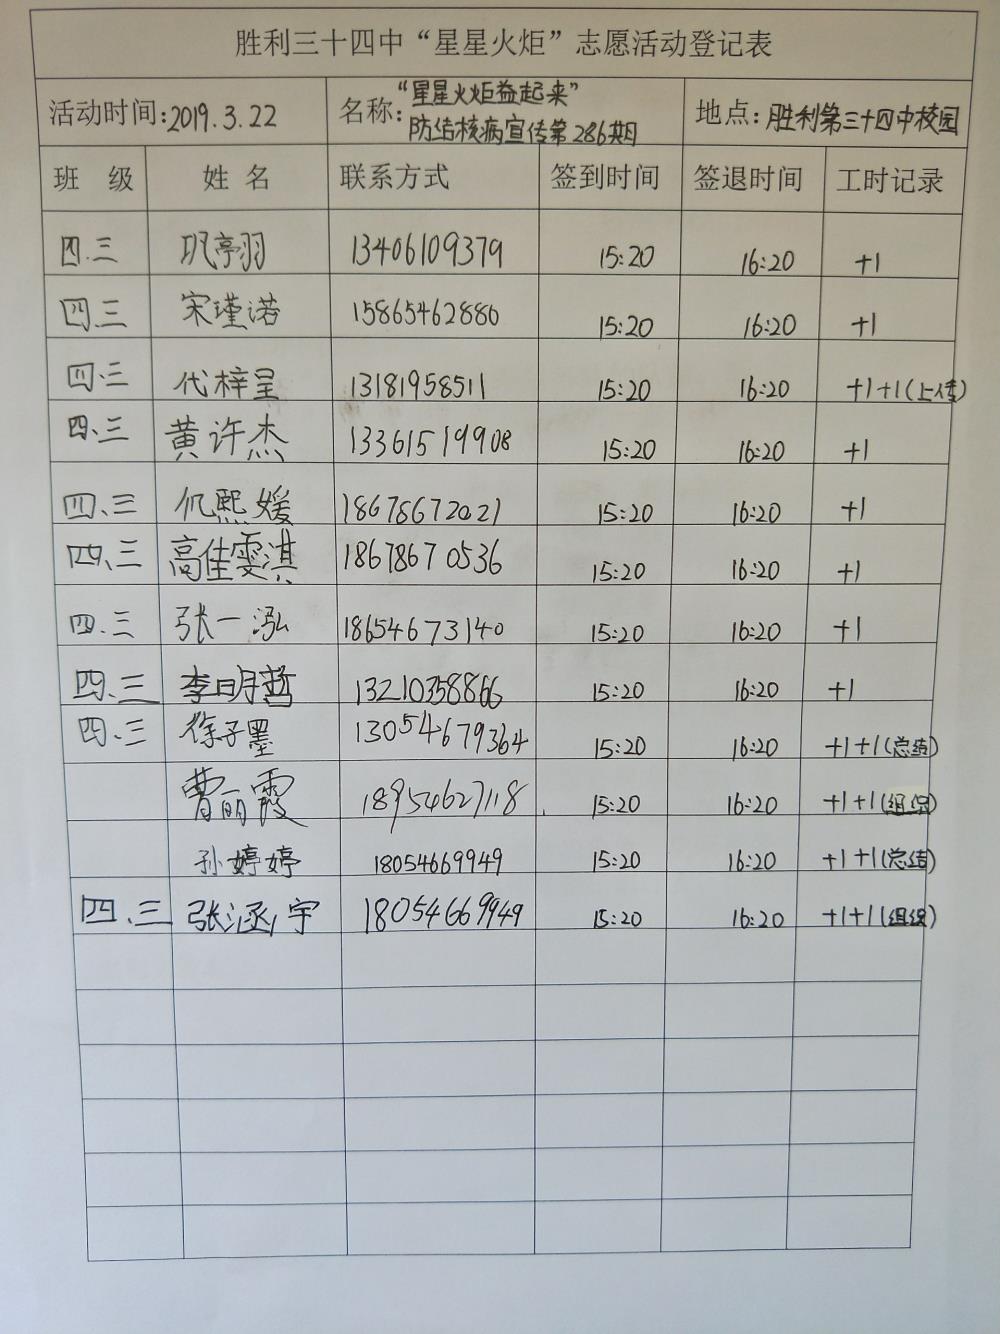 胜利三十四中“星星火炬”志愿活动登记表
活动时间:2019.3.22 名称:“星星火炬益起来” 防结核病宣传第286期 地点:胜利第三十四中校园
班 级 姓 名 联系方式 签到时间 签退时间 工时记录
四.三 巩亭羽 13406109379 15:20 16:20 +1
四三 宋瑾诺 15865462880 15:20 16:20 +1
四.三 代梓呈 13181958511 15:20 16:20 +1+1(上传)
四.三 黄许杰 13361519908 15:20 16:20 +1
四、三 仉熙媛 18678672021 15:20 16:20 +1
四、三 高佳雯淇 18678670536 15:20 16:20 +1
四.三 张一泓 18654673140 15:20 16:20 +1
四、三 李明哲 13210358866 15:20 16:20 +1
四.三 徐子墨 13054679364 15:20 16:20 +1+1(总结)
曹丽霞 18954627118 15:20 16:20 +1+1(组织)
孙婷婷 18054669949 15:20 16:20 +1+1(总结)
四.三 张涵宇 18054669949 15:20 16:20 +1+1(组织)